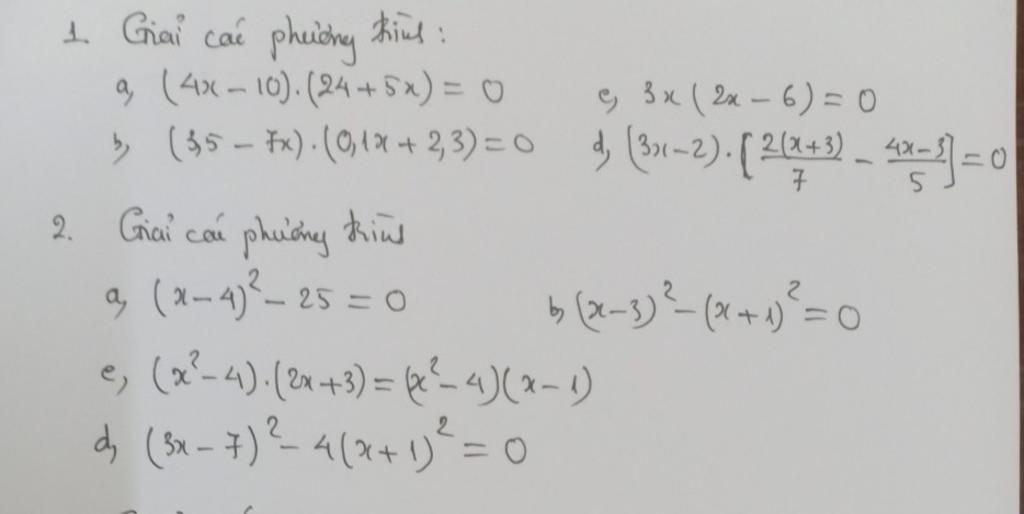 1. Giải các phương trình:
a, (4x – 10).(24 + 5x) = 0
c, 3x(2x – 6) = 0
b, (3,5 – 7x).(0,1x + 2,3) = 0
d, (3x – 2).[2(x+3)/7 – 4x–3/5] = 0
2. Giải các phương trình
a, (x – 4)² – 25 = 0
b, (x–3)² – (x+1)² = 0
c, (x² – 4).(2x+3) = (x² – 4)(x – 1)
d, (3x – 7)² – 4(x+1)² = 0